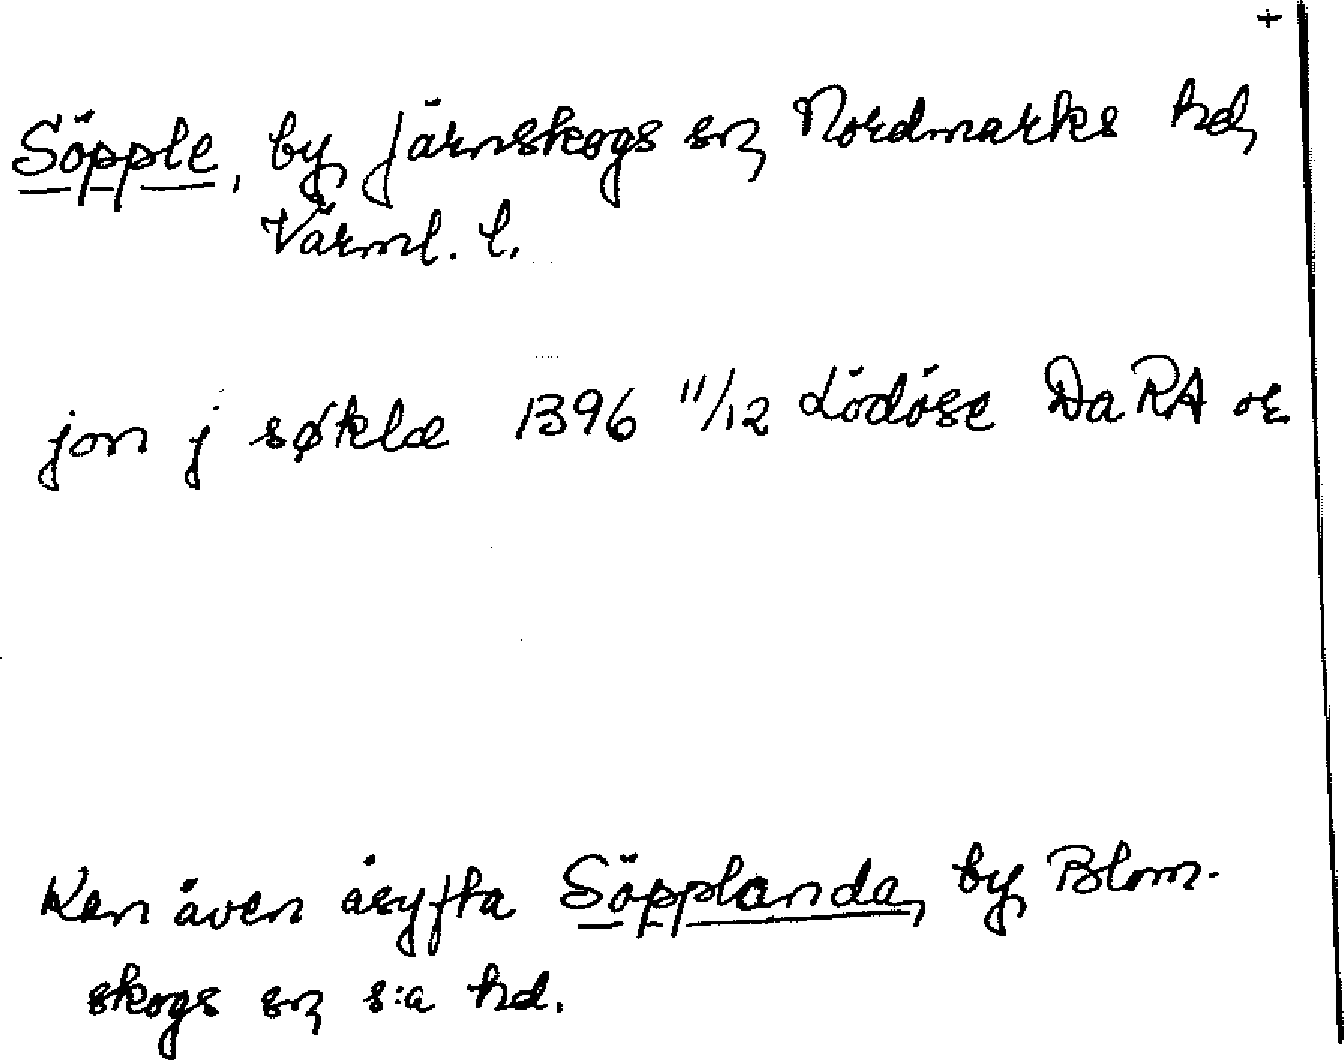 +
Söpple, by, Järnskogs sn, Nordmarks hd,
Värml. l.
jon j søklæ 1396 11/12 Lödöse DaRA or
Kan även åsyfta Söpplanda, by, Blom-
skogs sn, s:a hd.